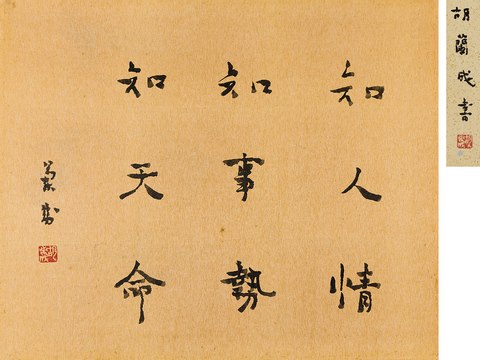 知人情
知事勢
知天命
蘭成
胡蘭成書